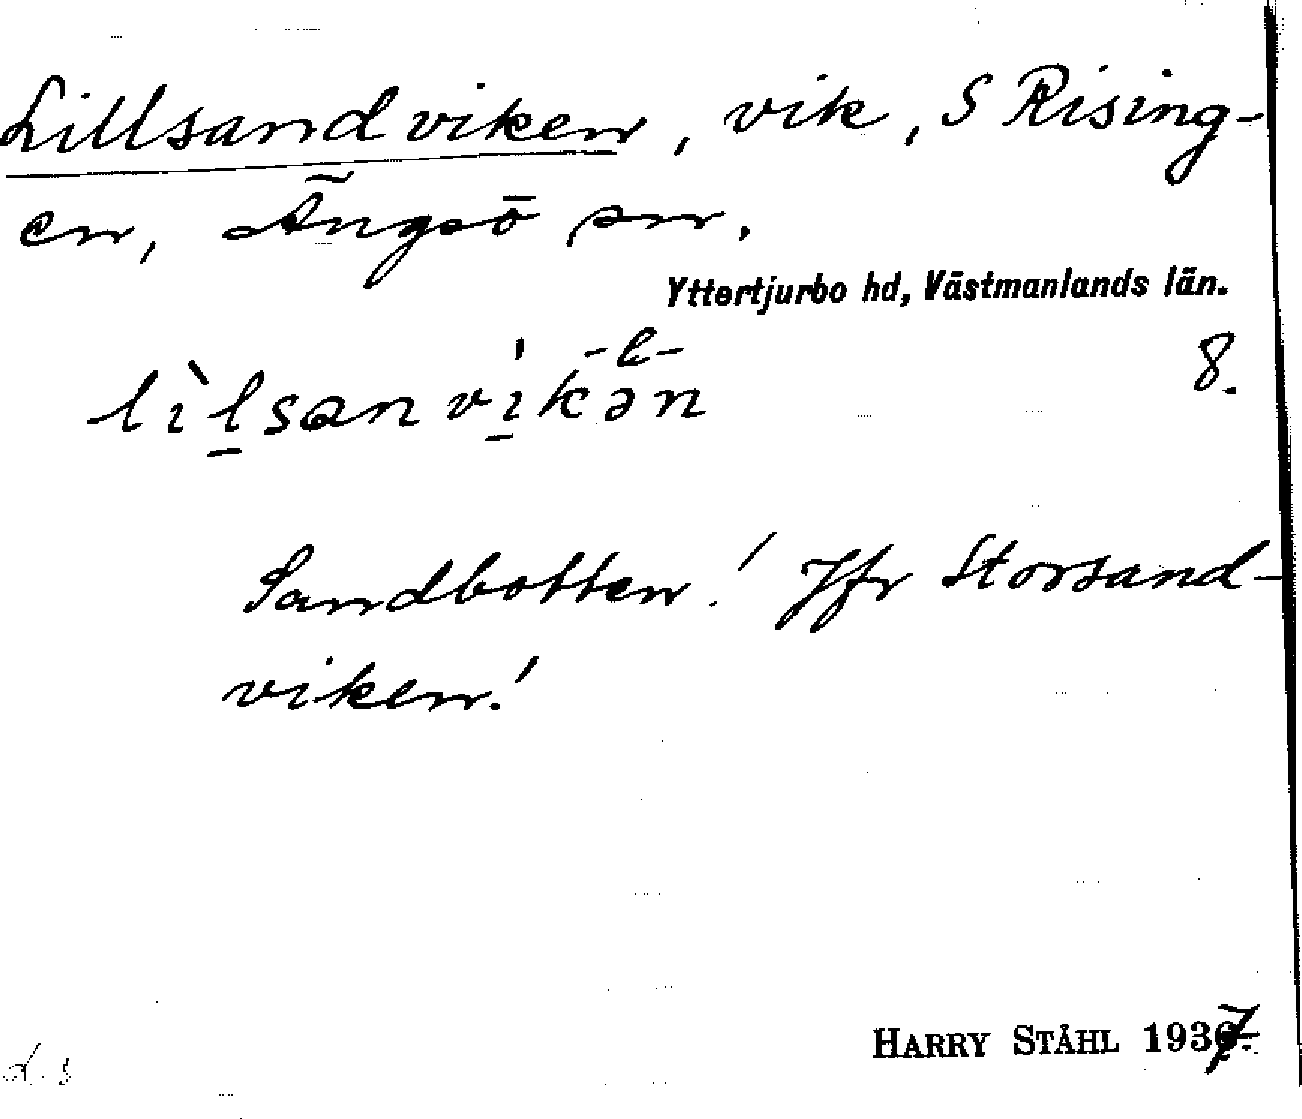 Lillsandviken, vik, S Rising-
en, Ängsö sn.
Yttertjurbo hd, Västmanlands län.
-e-
8.
lìlsanvíkən
Sandbotten! Jfr Storsand-
viken!
HARRY STÅHL 1937